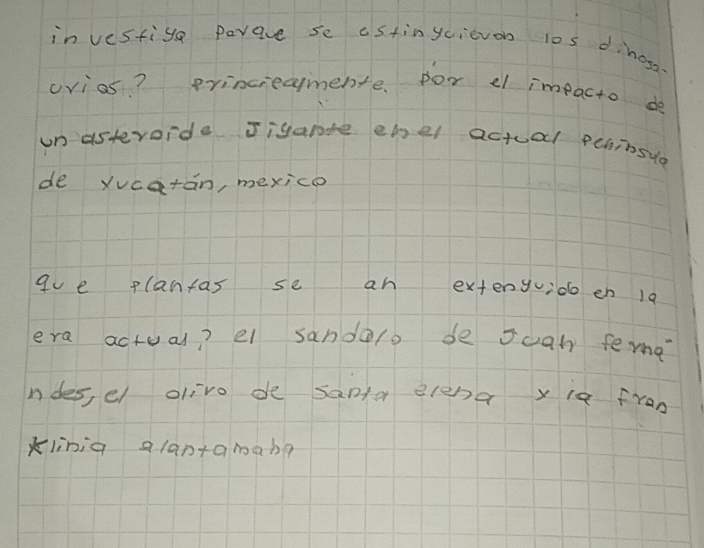 investiga porque se estinguieron los dinosa-
urios? principalmente. por el impacto de
un asteroide Jigante en el actual peninsula
de yucatán, mexico
que plantas se an extenguido en la
era actual? el sandalo de Juan ferna
ndes, el olivo de santa elena y la fran
klinia alantamaha